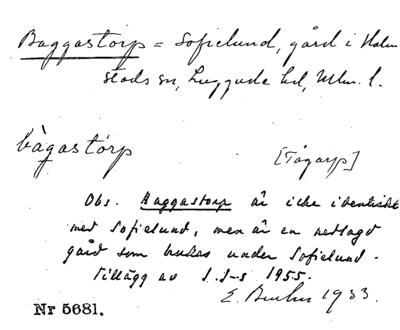 Baggastorp = Sofielund, gård i Halm
stads sn, Luggude hd, Mlm. l.
bàgastórp [Tågarp]
Obs. Baggastorp är icke identiskt
med Sofielund, men är en nedlagd
gård som brukas under Sofielund.
Tillägg av I. I-s 1955.
E. 1933.
Nr 5681.